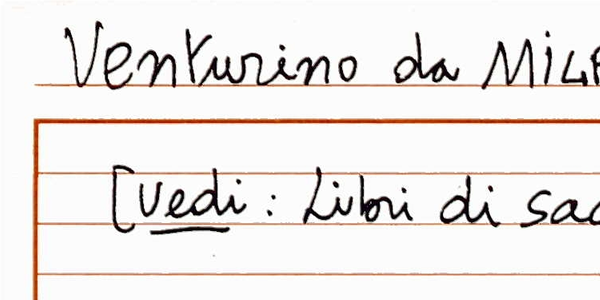 Venturino da
[Vedi: Libri di